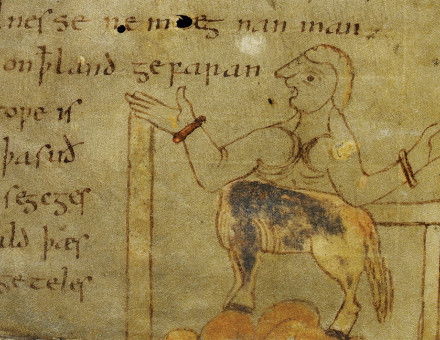 lnesse ne mæg nan man.
on ꝥ land gefaran
toƿe is
þa suð
segeges
uld þæs
geteles